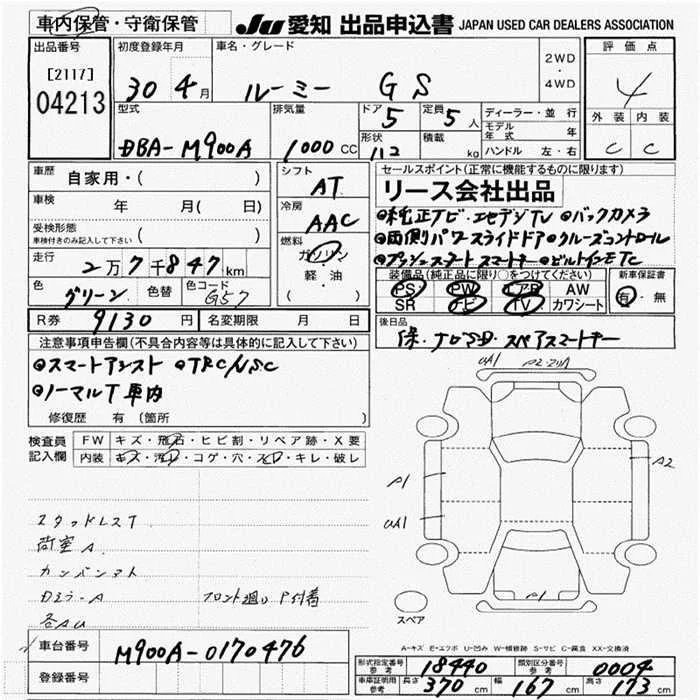 車内保管・守衛保管
JU 愛知 出品申込書 JAPAN USED CAR DEALERS ASSOCIATION
出品番号
[2117]
04213
初度登録年月
30 4月
車名・グレード
ルーミー GS
2WD
・
4WD
評価点
4
外装 内装
C C
型式
DBA-M900A
排気量
1000 CC
ドア
5
形状
定員
5人
積載
kg
ディーラー・並行
モデル年式 年
ハンドル 左・右
車歴
自家用・( )
車検
年 月( 日)
受検形態
車検付きのみ記入して下さい ( )
走行
2万7千847km
色
グリーン
色替
色コード
G57
シフト
AT
冷房
AAC
燃料
ガソリン
軽・油
( )
R券 9130円
名変期限 月 日
セールスポイント(正常に機能するものに限ります)
リース会社出品
●純正ナビ・地デジTV ●バックカメラ
●両側パワースライドドア●クルーズコントロール
●プッシュスタート スマートキー ●ビルトインETC
装備品(純正品に限り○をつけてください)
PS PW エアB AW
SR ナビ TV カワシート
新車保証書
有・無
後日品
保・ナビSD・スペアスマートキー
注意事項申告欄(不具合内容等は具体的に記入して下さい)
●スマートアシスト ●TRC/VSC
●ノーマルT車内
修復歴 有 (箇所 )
検査員記入欄
FW キズ・飛石・ヒビ割・リペア跡・X要
内装 キズ・汚レ・コゲ・穴・スレ・キレ・破レ
スタッドレスT
荷室A
カンバンアト
フロント廻りP付着
各AU
UA1
A1
A2
UA1
P1
スペア
A-キズ E-エクボ U-凹み W-補修跡 S-サビ C-腐食 XX-交換済
車台番号
M900A-0170476
登録番号
形式指定番号 参考
18440
類別区分番号 参考
0004
車庫証明用 参考
長さ 370 cm 幅 167 cm 高さ 173 cm